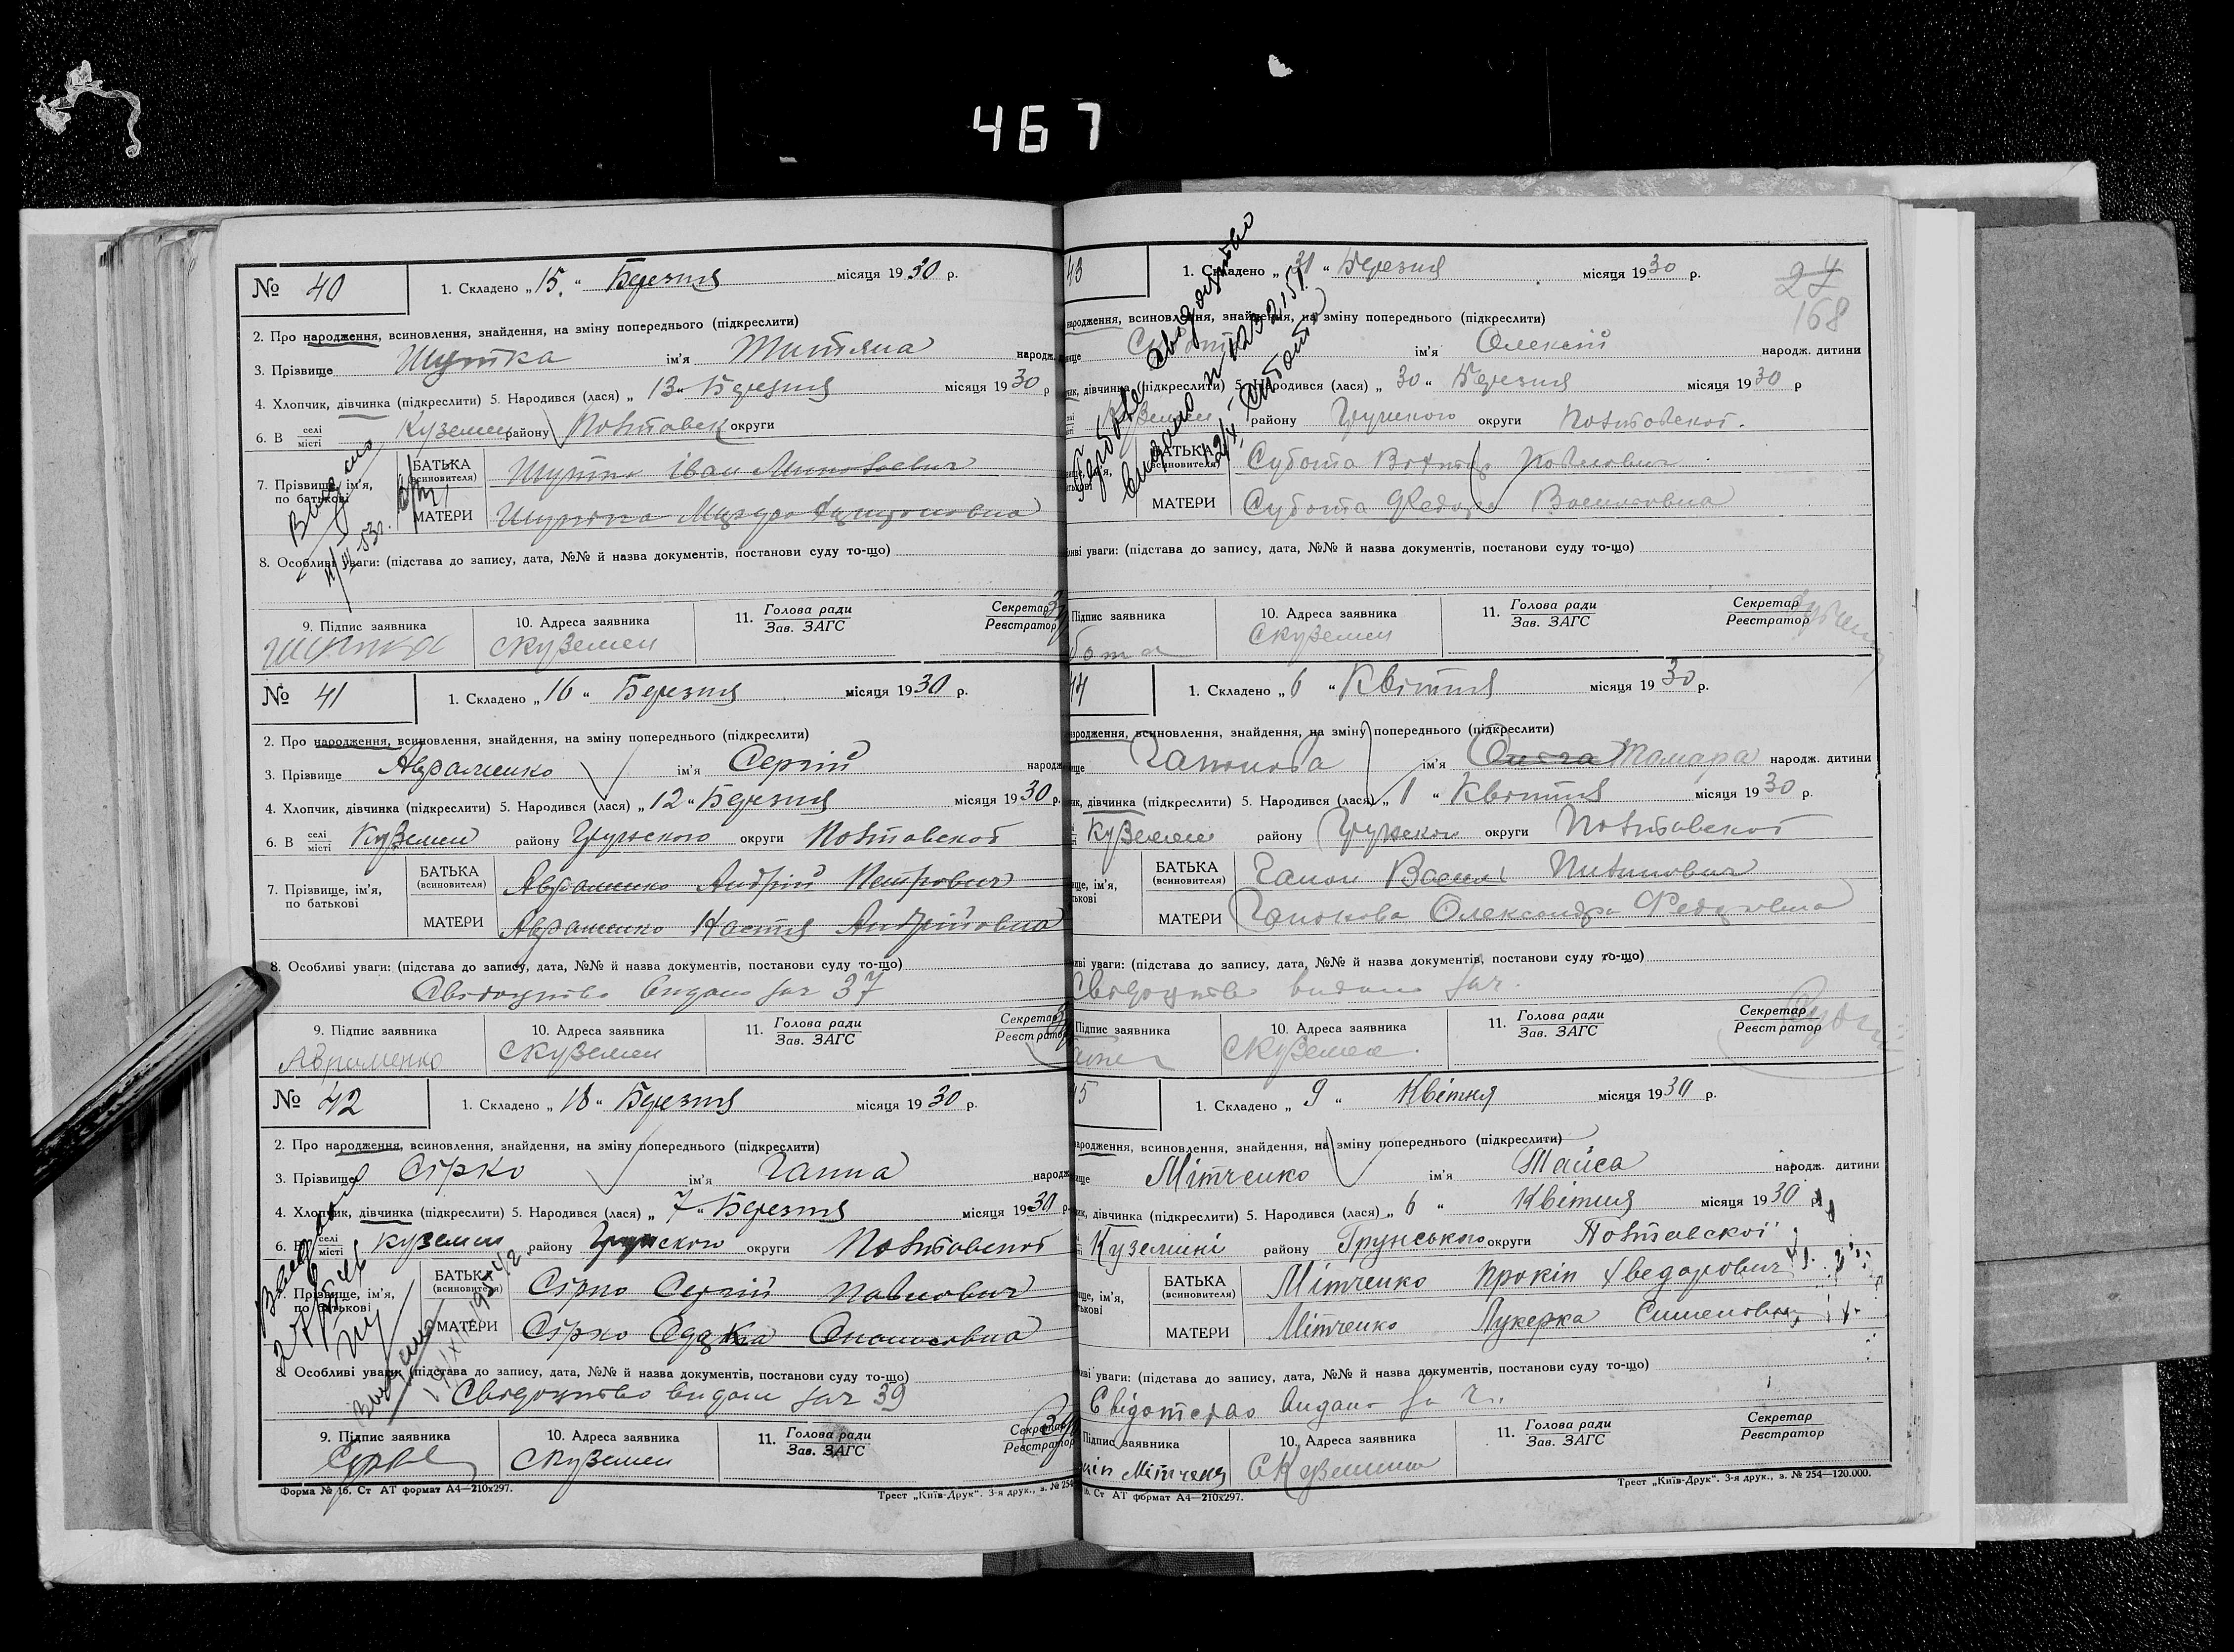 467
№ 40
1. Складено „15.“ Березня місяця 1930 р.
2. Про народження, всиновлення, знайдення, на зміну попереднього (підкреслити)
3. Прізвище Шутка ім'я Титяна народж.
4. Хлопчик, дівчинка (підкреслити) 5. Народився (лася) „13“ Березня місяця 1930 р
6. В селі місті Куземен району Полтавск округи
7. Прізвище, ім'я, по батькові
БАТЬКА (всиновителя) Іван
МАТЕРИ
8. Особливі уваги: (підстава до запису, дата, №№ й назва документів, постанови суду то-що)
9. Підпис заявника
10. Адреса заявника
11. Голова ради Зав. ЗАГС
Секретар Реєстратор
с Куземен
№ 41
1. Складено „16“ Березня місяця 1930 р.
2. Про народження, всиновлення, знайдення, на зміну попереднього (підкреслити)
3. Прізвище Авраменко ім'я Сергій народж
4. Хлопчик, дівчинка (підкреслити) 5. Народився (лася) „12“ Березня місяця 1930 р.
6. В селі місті Куземен району Грунского округи Полтавскої
7. Прізвище, ім'я, по батькові
БАТЬКА (всиновителя) Авраменко Андрій Петрович
МАТЕРИ Авраменко Настя Андрійовна
8. Особливі уваги: (підстава до запису, дата, №№ й назва документів, постанови суду то-що)
Свідоцтво видано за № 37
9. Підпис заявника
10. Адреса заявника
11. Голова ради Зав. ЗАГС
Секретар Реєстратор
Авраменко
с Куземен
№ 42
1. Складено „18“ Березня місяця 1930 р.
2. Про народження, всиновлення, знайдення, на зміну попереднього (підкреслити)
3. Прізвище Сірко ім'я Ганна народж
4. Хлопчик, дівчинка (підкреслити) 5. Народився (лася) „7“ Березня місяця 1930 р.
6. В селі місті Куземен району Грунского округи Полтавскої
7. Прізвище, ім'я, по батькові
БАТЬКА (всиновителя) Сірко Сергій Павлович
МАТЕРИ Сірко
8. Особливі уваги: (підстава до запису, дата, №№ й назва документів, постанови суду то-що)
Свідоцтво видано за № 39
9. Підпис заявника
10. Адреса заявника
11. Голова ради Зав. ЗАГС
Секретар Реєстратор
с Куземен
Форма № 16. Ст АТ формат А4—210х297.
Трест „Київ-Друк“. 3-я друк., з. № 254
43
1. Складено „31“ Березня місяця 1930 р.
27
168
народження, всиновлення, знайдення, на зміну попереднього (підкреслити)
ім'я Олексій народж. дитини
дівчинка (підкреслити) 5. Народився (лася) „30“ Березня місяця 1930 р
Куземен району Грунского округи Полтавскої.
БАТЬКА (всиновителя) Субота Павлович
МАТЕРИ Субота Федора Василовна
уваги: (підстава до запису, дата, №№ й назва документів, постанови суду то-що)
Підпис заявника
10. Адреса заявника
11. Голова ради Зав. ЗАГС
Секретар Реєстратор
бота
с Куземен
44
1. Складено „6“ Квітня місяця 1930 р.
народження, всиновлення, знайдення, на зміну попереднього (підкреслити)
Гапонова ім'я Тамара народж. дитини
дівчинка (підкреслити) 5. Народився (лася) „1“ Квітня місяця 1930 р.
Куземен району Грунского округи Полтавскої
БАТЬКА (всиновителя) Гапон Василь Пилипович
МАТЕРИ Гапонова Олександра Федоровна
уваги: (підстава до запису, дата, №№ й назва документів, постанови суду то-що)
Свідоцтво видано за №.
Підпис заявника
10. Адреса заявника
11. Голова ради Зав. ЗАГС
Секретар Реєстратор
с Куземен.
45
1. Складено „9“ Квітня місяця 1930 р.
народження, всиновлення, знайдення, на зміну попереднього (підкреслити)
Мітченко ім'я Таїса народж. дитини
дівчинка (підкреслити) 5. Народився (лася) „6“ Квітня місяця 1930 р.
Куземині району Грунського округи Полтавскої
БАТЬКА (всиновителя) Мітченко Прокіп Хведорович
МАТЕРИ Мітченко Лукерка
уваги: (підстава до запису, дата, №№ й назва документів, постанови суду то-що)
видано за №.
Підпис заявника
10. Адреса заявника
11. Голова ради Зав. ЗАГС
Секретар Реєстратор
кіп Мітченко
16. Ст АТ формат А4—210х297.
Трест „Київ-Друк“. 3-я друк., з. № 254—120.000.